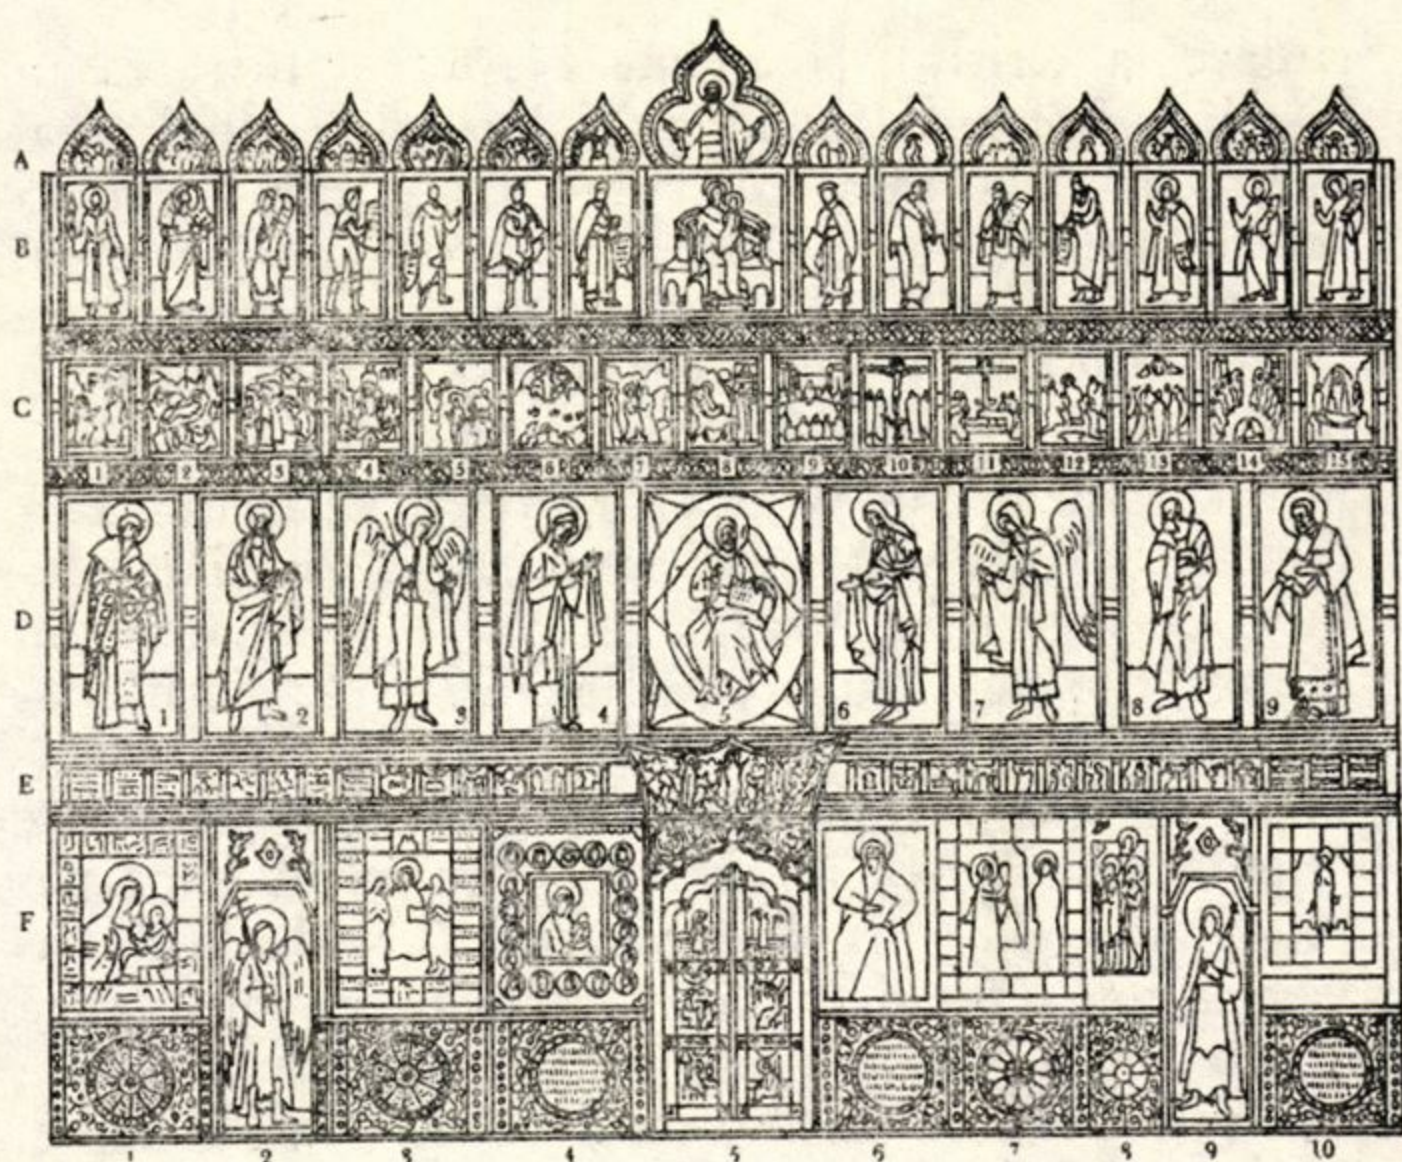 A
B
C
1 2 3 4 5 6 7 8 9 10 11 12 13 14 15
D
1 2 3 4 5 6 7 8 9
E
F
1 2 3 4 5 6 7 8 9 10